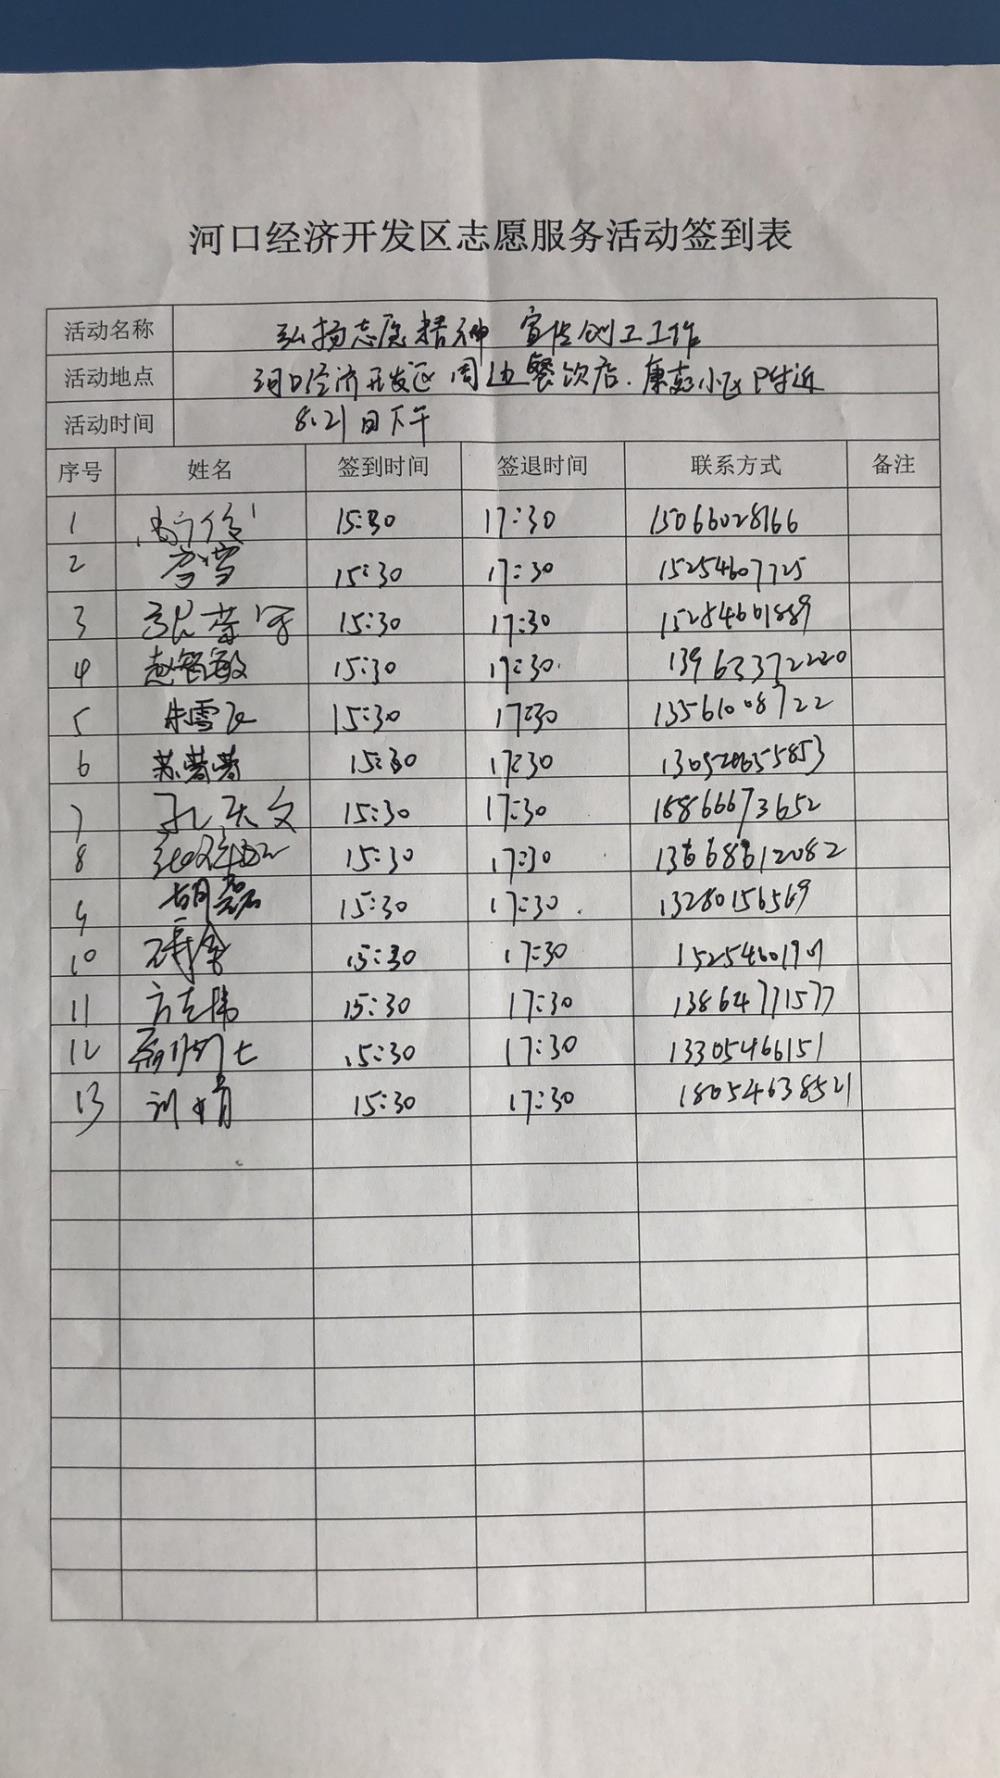 河口经济开发区志愿服务活动签到表
活动名称 弘扬志愿精神 宣传创工工作
活动地点 河口经济开发区周边餐饮店.康彭小区附近
活动时间 8.21日下午
序号 姓名 签到时间 签退时间 联系方式 备注
1 15:30 17:30 15066028166
2 李雪 15:30 17:30 15254607725
3 15:30 17:30 15254601889
4 赵智敏 15:30 17:30. 13963372220
5 朱雪飞 15:30 17:30 13561008722
6 苏蕾蕾 15:30 17:30
7 孔庆文 15:30 17:30 18866673652
8 15:30 17:30 13668612082
9 胡磊 15:30 17:30. 13280156569
10 15:30 17:30
11 方志伟 15:30 17:30 13864771577
12 15:30 17:30 13305466151
13 刘婧 15:30 17:30 18054638521